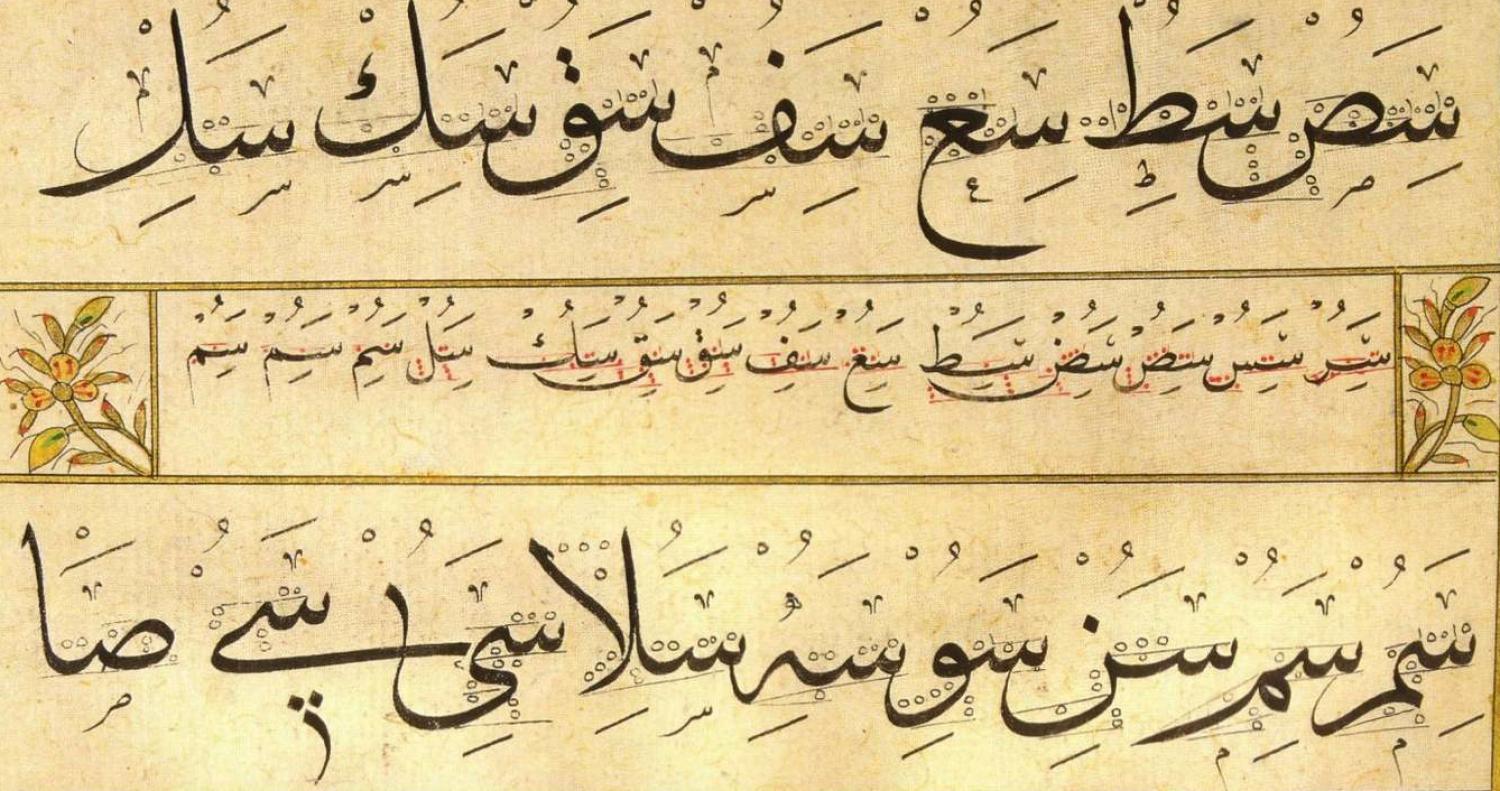 سص سط سع سف سق سك سل
سر سس سص سص سط سع سف سق سق سك سل سم سم سم
سم سم سن سو سه سلا سى سے صا